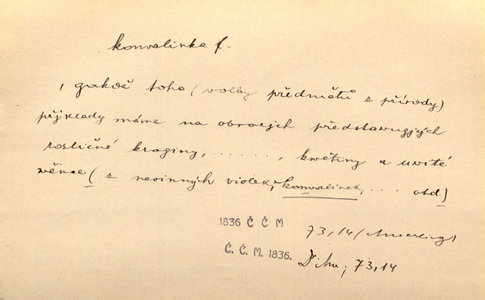 konvalinka f.
, gakož toho (volby předmětů z přírody)
přjklady máme na obrazjch představugjcých
rozličné kraginy, . . . . . . , květiny a uvité
věnce (z nevinných violek, konvalinek, . . . atd.)
1836 Č Č M 73,14 
Č. Č. M. 1836. 73,14